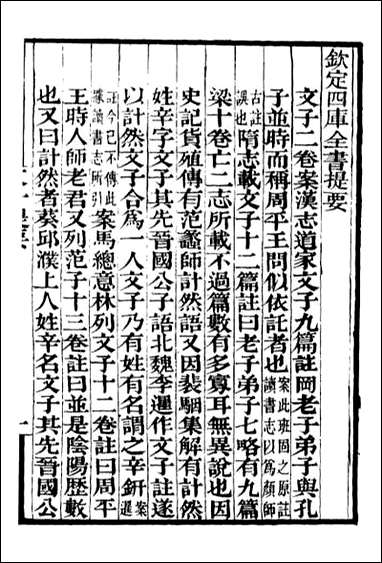 欽定四庫全書提要
文子二卷案漢志道家文子九篇註曰老子弟子與孔
子並時而稱周平王問似依託者也案此班固之原註讀書志以爲顏師
古註誤也隋志載文子十二篇註曰老子弟子七略有九篇
梁十卷亡二志所載不過篇數有多寡耳無異說也因
史記貨殖傳有范蠡師計然語又因裴駰集解有計然
姓辛字文子其先晉國公子語北魏李暹作文子註遂
以計然文子合爲一人文子乃有姓有名謂之辛鈃案暹
註今已不傳此據讀書志所引案馬總意林列文子十二卷註曰周平
王時人師老君又列范子十三卷註曰並是陰陽歷數
也又曰計然者葵邱濮上人姓辛名文子其先晉國公
一